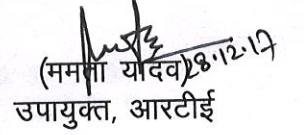 (ममता यादव) 28.12.17
उपायुक्त, आरटीई